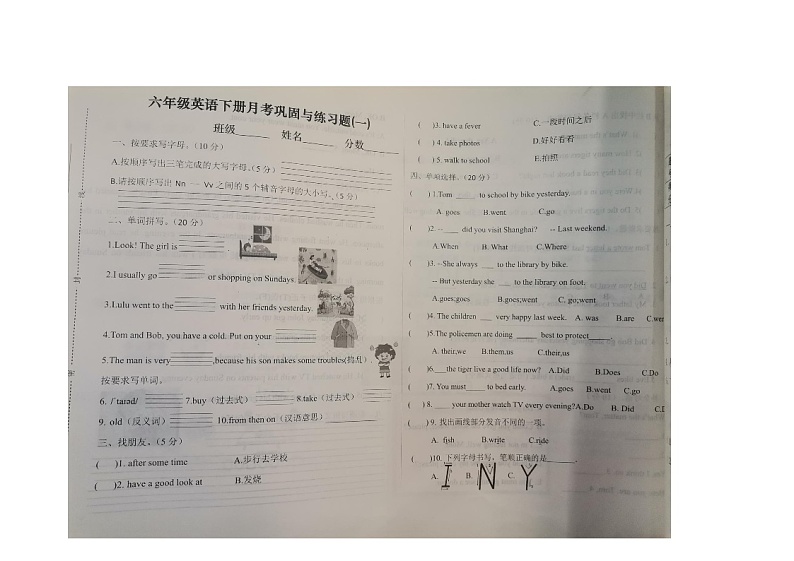 六年级英语下册月考巩固与练习题(一)
班级______ 姓名______ 分数______
一、按要求写字母。(10分)
A.按顺序写出三笔完成的大写字母。(5分)
B.请按顺序写出 Nn -- Vv 之间的5个辅音字母的大小写。(5分)
二、单词拼写。(20分)
1.Look! The girl is
2.I usually go or shopping on Sundays.
3.Lulu went to the with her friends yesterday.
4.Tom and Bob, you have a cold. Put on your
5.The man is very ,because his son makes some troubles(捣乱)
按要求写单词。
6. /ˈtaɪəd/ 7.buy（过去式） 8.take（过去式）
9. old（反义词） 10.from then on（汉语意思）
三、找朋友。(5分)
( )1. after some time A.步行去学校
( )2. have a good look at B.发烧
( )3. have a fever C.一段时间之后
( )4. take photos D.好好看看
( )5. walk to school E.拍照
四、单项选择。(20分)
( )1.Tom ____ to school by bike yesterday.
A. goes B.went C.go
( )2. --____ did you visit Shanghai? -- Last weekend.
A.When B. What C.Where
( )3. --She always ____ to the library by bike.
-- But yesterday she ____ to the library on foot.
A.goes;goes B.goes;went C. go;went
( )4. The children ____ very happy last week. A. was B.are C.wer
( )5.The policemen are doing ____ best to protect______
A. their,we B.them,us C.their,us
( )6.____the tiger live a good life now? A.Did B.Does C.Do
( )7. You must____ to bed early. A.goes B.went C.go
( )8. ____ your mother watch TV every evening?A.Do B. Did C.D
( )9. 找出画线部分发音不同的一项。
A. fish B.write C.ride
( )10. 下列字母书写，笔顺正确的是______.
A. I B. N C. Y